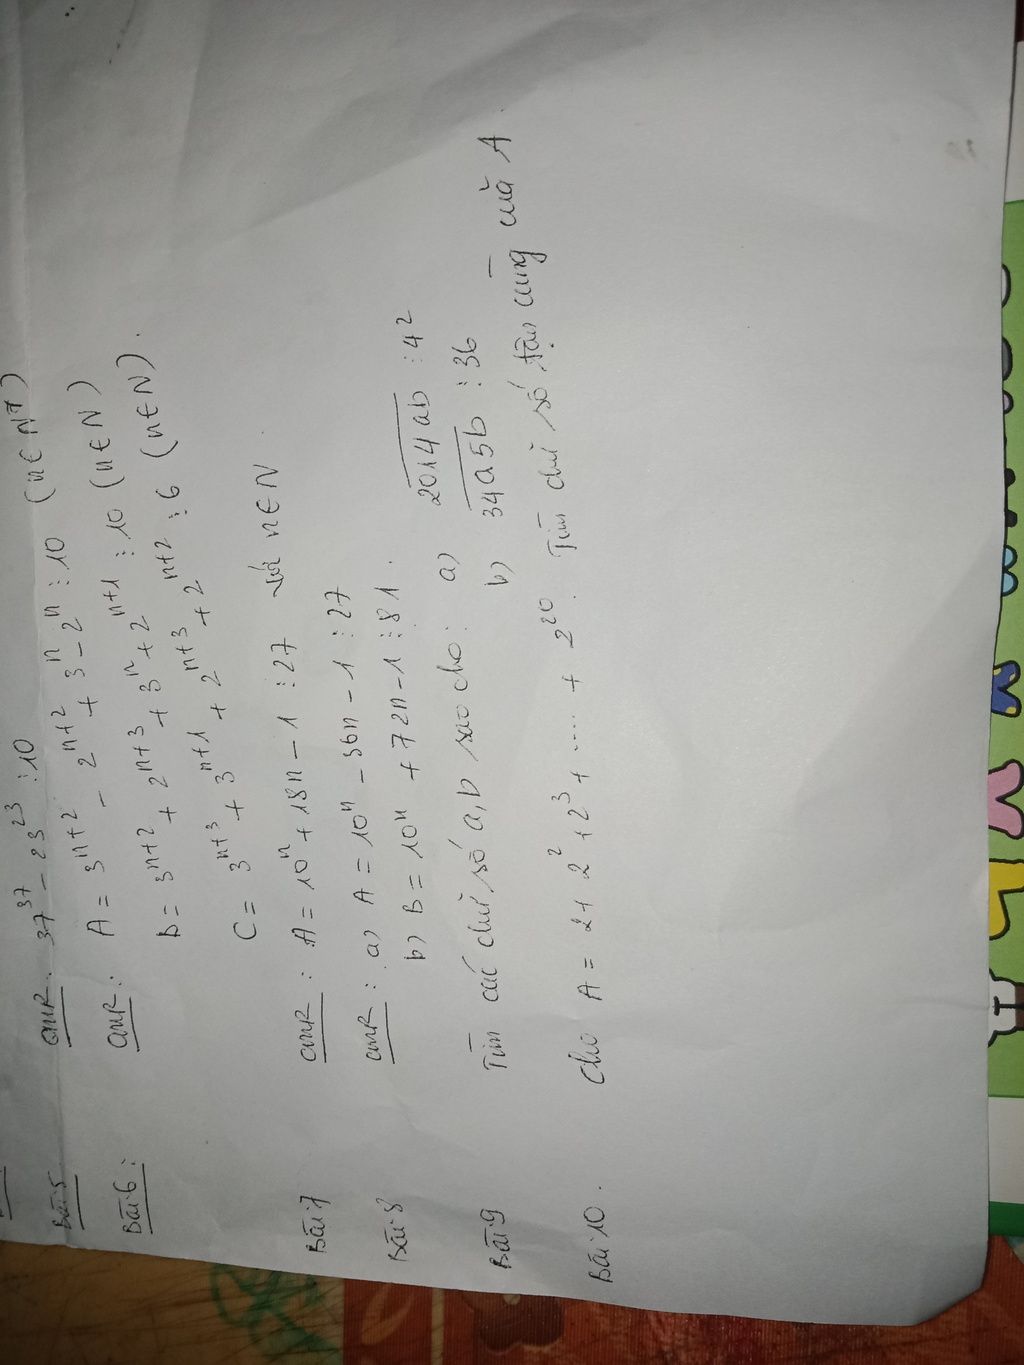 Bài 5 CMR: 37³⁷ - 23²³ ⋮ 10
Bài 6: CMR: A = 3ⁿ⁺² - 2ⁿ⁺² + 3ⁿ - 2ⁿ ⋮ 10 (n ∈ N*)
B = 3ⁿ⁺² + 2ⁿ⁺³ + 3ⁿ + 2ⁿ⁺¹ ⋮ 10 (n ∈ N)
C = 3ⁿ⁺³ + 3ⁿ⁺¹ + 2ⁿ⁺³ + 2ⁿ⁺² ⋮ 6 (n ∈ N).
Bài 7 CMR: A = 10ⁿ + 18n - 1 ⋮ 27 với n ∈ N
Bài 8 CMR: a) A = 10ⁿ - 36n - 1 ⋮ 27
b) B = 10ⁿ + 72n - 1 ⋮ 81.
Bài 9 Tìm các chữ số a,b sao cho: a) 2014ab ⋮ 4²
b) 34a5b ⋮ 36
Bài 10. Cho A = 2 + 2² + 2³ + .... + 2²⁰. Tìm chữ số tận cùng của A.